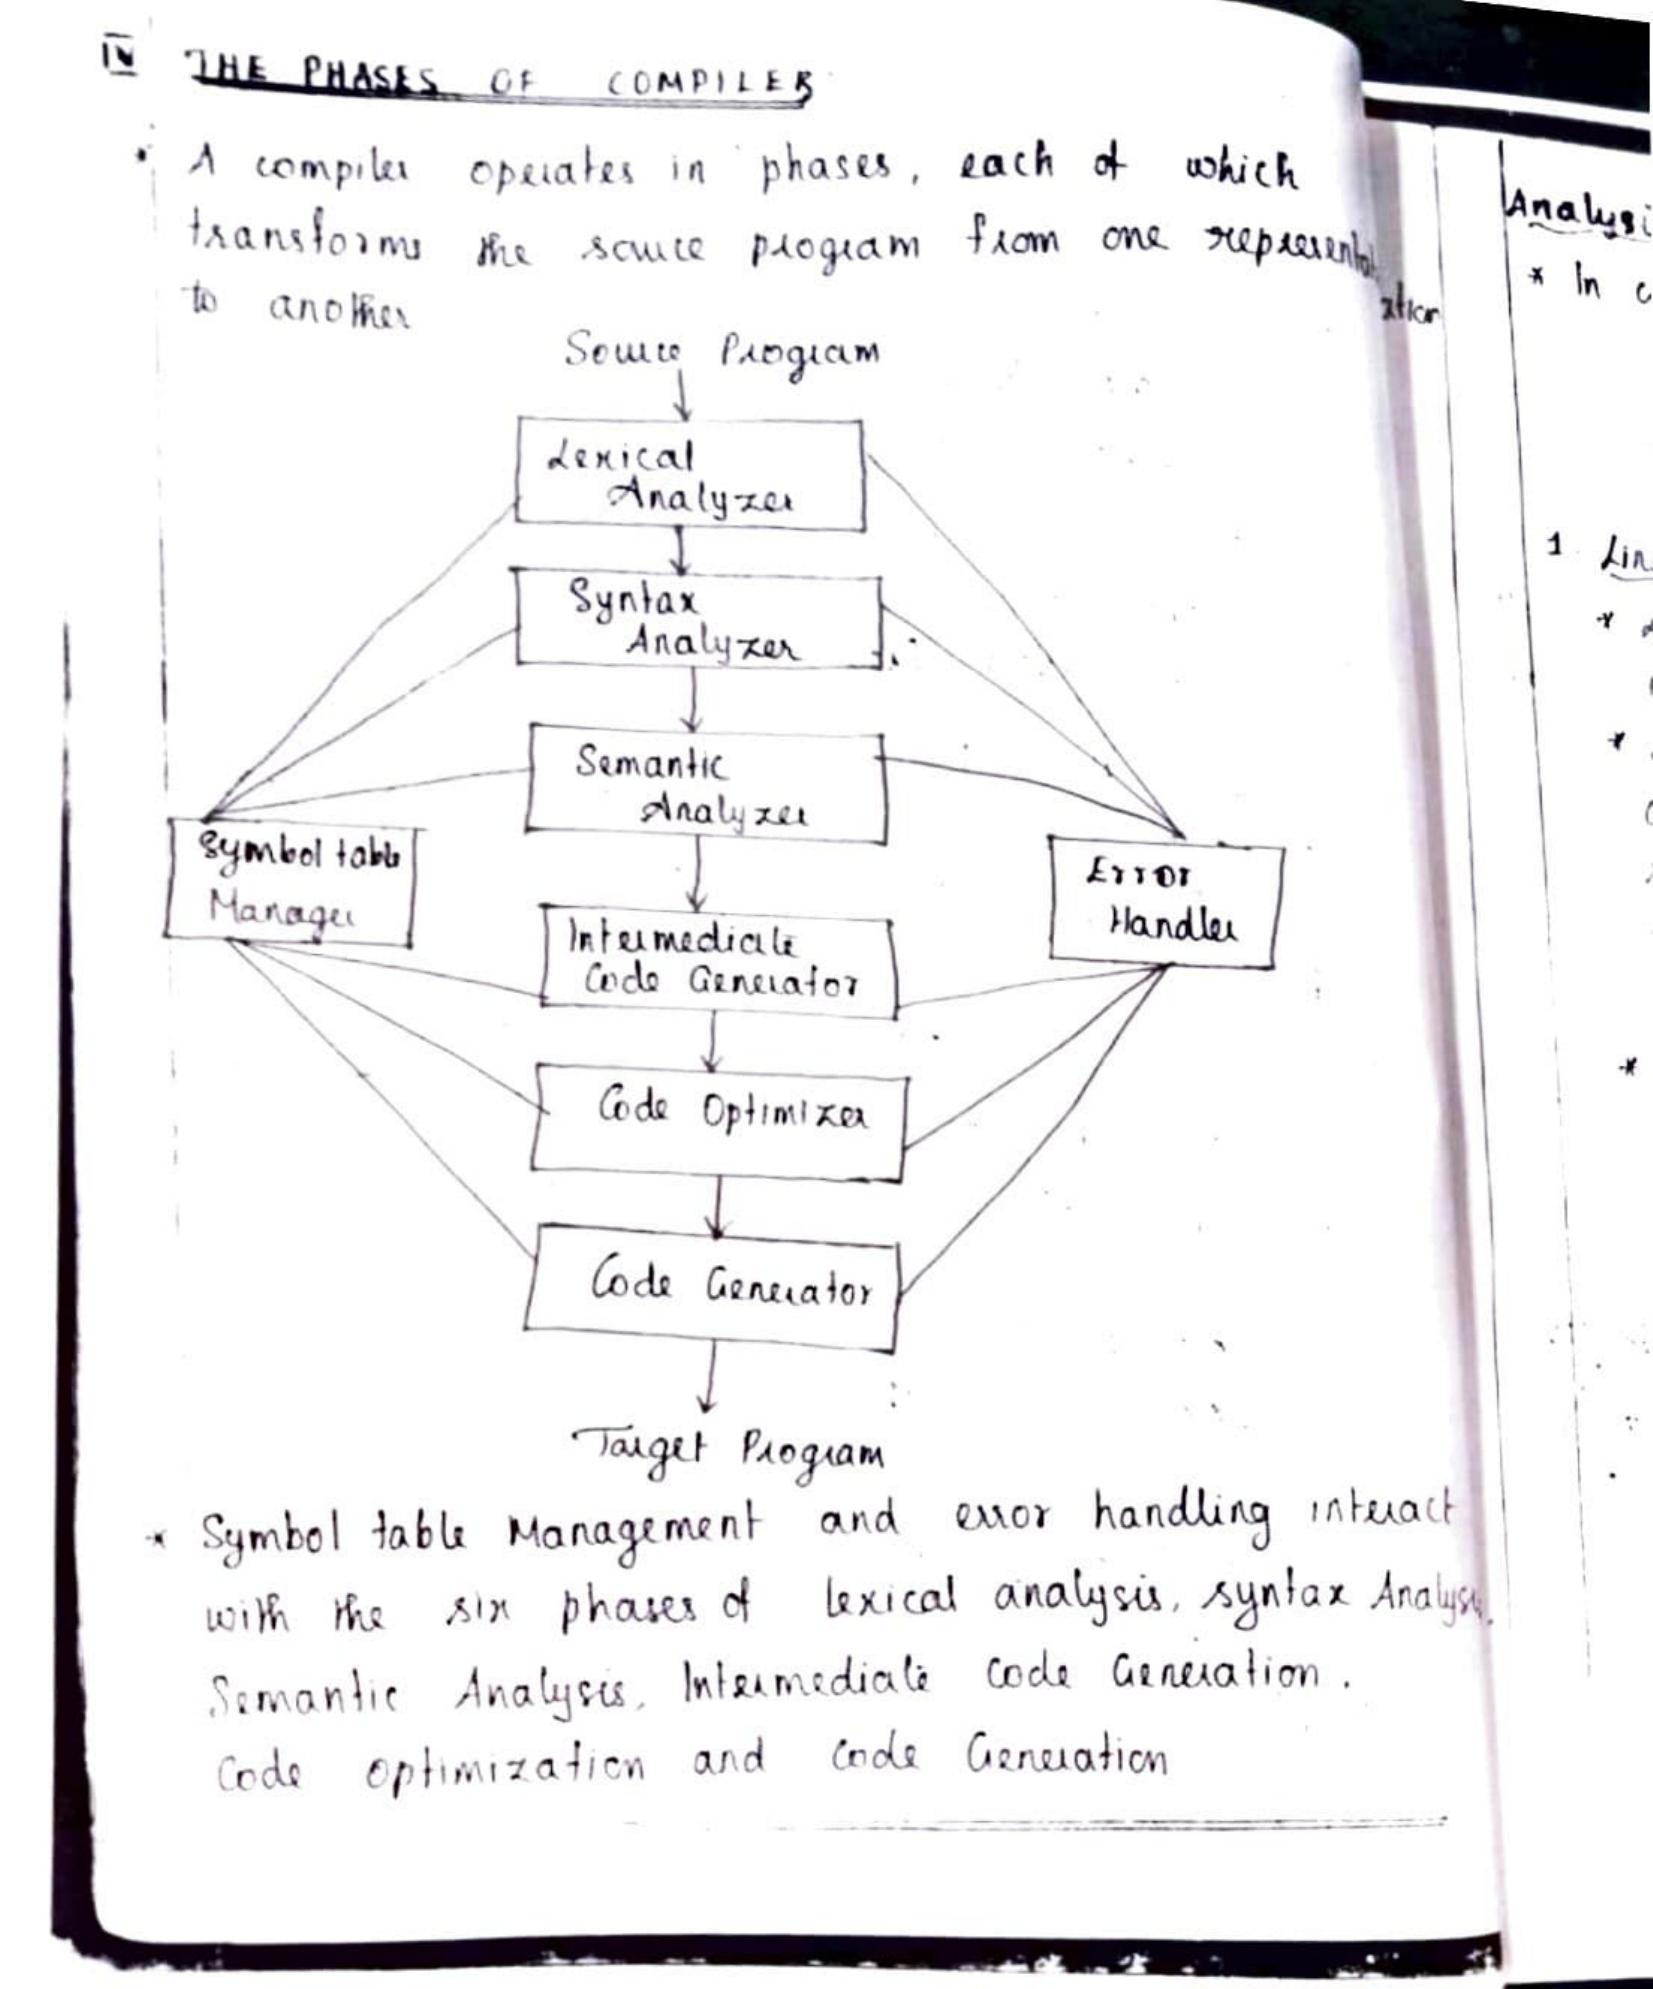 IV THE PHASES OF COMPILER
• A compiler operates in phases, each of which
transforms the source program from one representation
to another
Source Program
Lexical
Analyzer
Syntax
Analyzer
Semantic
Analyzer
Symbol table
Manager
Error
Handler
Intermediate
Code Generator
Code Optimizer
Code Generator
Target Program
* Symbol table Management and error handling interact
with the six phases of lexical analysis, syntax Analysis,
Semantic Analysis, Intermediate code Generation.
Code optimization and code Generation
Analysi
* In c
1 Lin
*
*
*